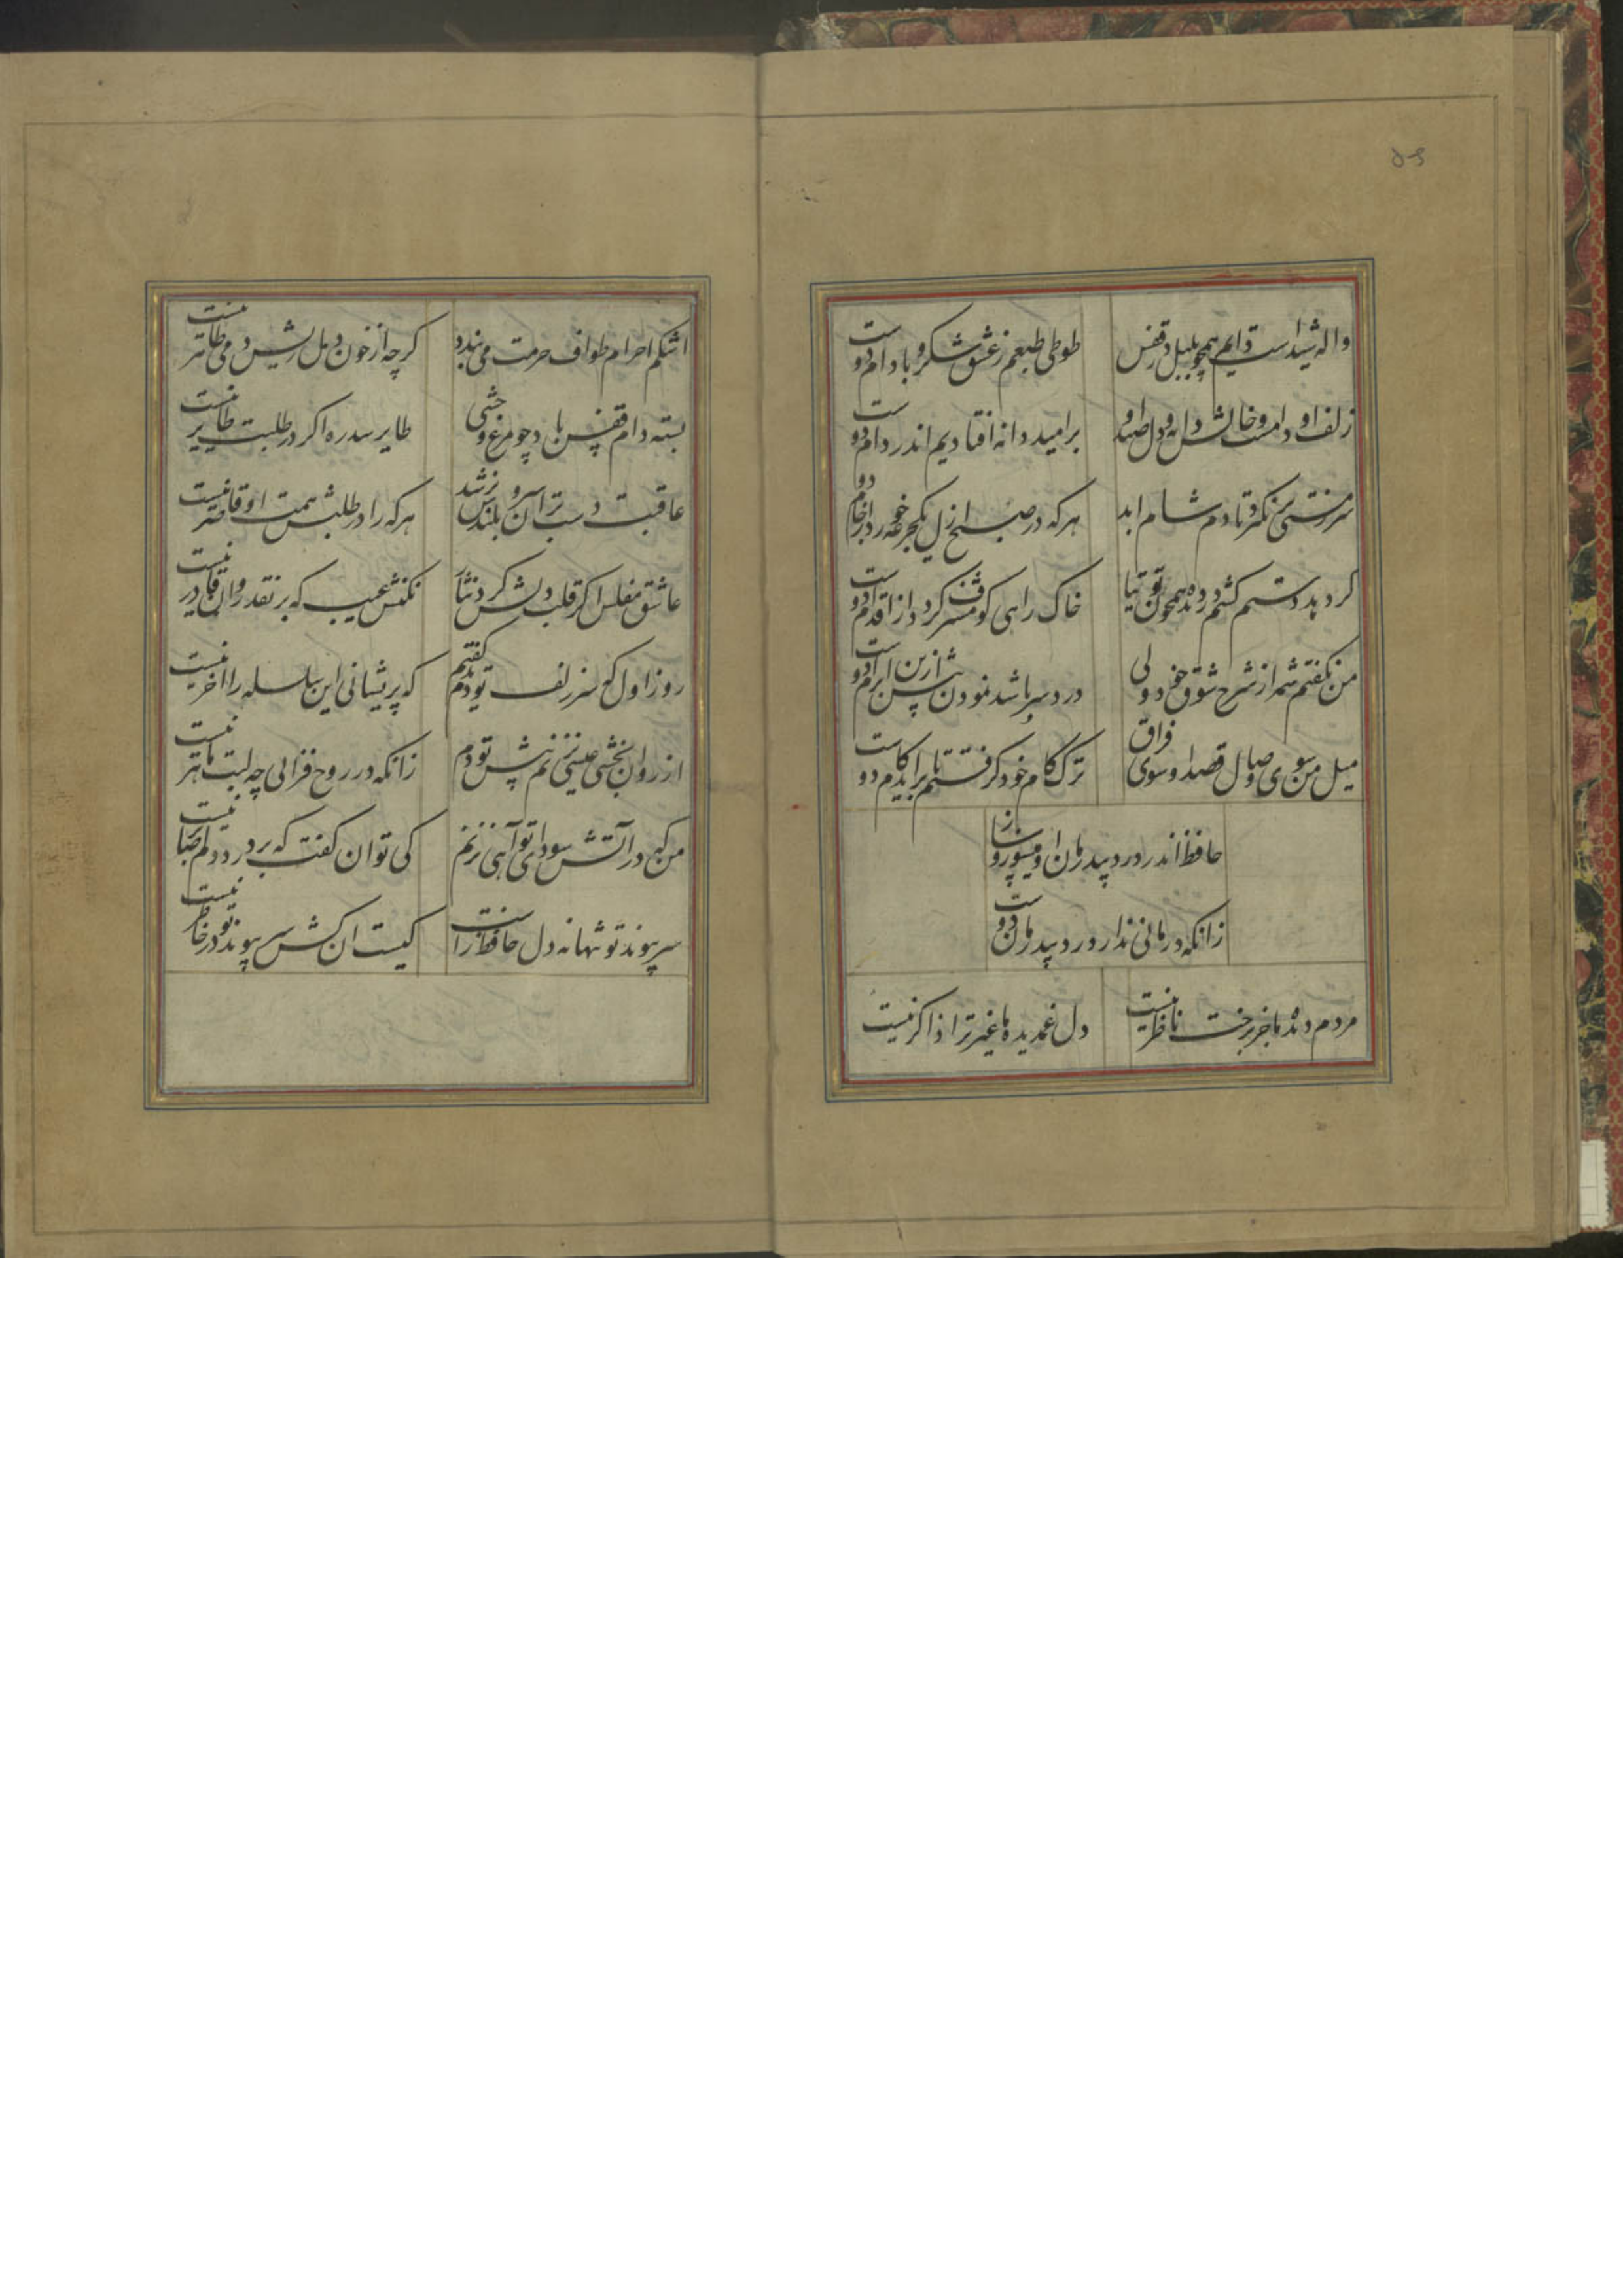 ۵۶
واله شیداست دایم همچو بلبل در قفس
طوطی طبعم ز عشق شکر و بادام دوست
زلف او دامست و خالش دانه و دل صید او
بر امید دانه افتادیم اندر دام دوست
سر ز مستی بر نکرد تا دم شام ابد
هر که در صبح ازل یکجرعه خورد از جام دو
کرد بد دستم کشم در دیده همچون توتیا
خاک راهی کو مشرف کردد از اقدام دوست
من نکفتم شمه از شرح شوق خود ولی
درد سر باشد نمودن بیش ازین ابرام دوست
میل من سوی وصال و قصد او سوی فراق
ترک کام خود کرفتم تا براید کام دوست
حافظ اندر درد او میسوز و بیدرمان بساز
زانکه درمانی ندارد درد بیدرمان دوست
مردم دیده ما جز برخت ناظر نیست
دل غمدیده ما غیر ترا ذاکر نیست
اشکم احرام طواف حرمت می بندد
کرچه از خون دل ریش دمی طاهر نیست
بسته دام قفس باد چو مرغ وحشی
طایر سدره اکر در طلبت طایر نیست
عاقبت دست بر آن سرو بلندش برسد
هر که را در طلبش همت او قاصر نیست
عاشق مفلس اکر قلب دلش کرد نثار
نکنش عیب که بر نقد روان قادر نیست
روز اول که سر زلف تو دیدم کفتم
که پریشانی این سلسله را اخر نیست
از روان بخشی عیسی نزنم پیش تو دم
زانکه در روح فزایی چه لبت ماهر نیست
من که در آتش سودای تو آهی نزنم
کی توان کفت که بر درد دلم صابر نیست
سر پیوند تو تنها نه دل حافظ راست
کیست ان کش سر پیوند تو در خاطر نیست